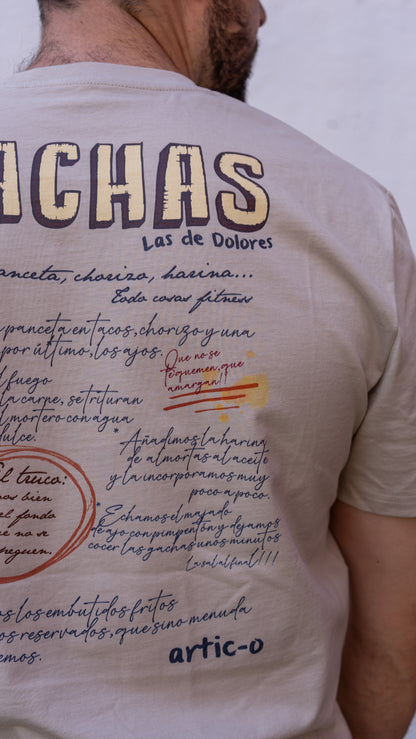 ACHAS
Las de Dolores
anceta, chorizo, harina...
Todo cosas fitness
panceta en tacos, chorizo y una
por último, los ajos.
Que no se
te quemen, que
amargan!!
l fuego
la carpe, se trituran
l mortero con agua
dulce.
* Añadimos la harina
de almortas al aceite
y la incorporamos muy
poco a poco.
l truco:
os bien
el fondo
e no se
eguen.
* Echamos el majado
de ajo con pimentón y dejamos
cocer las gachas unos minutos
La sal al final!!!
os los embutidos fritos
os reservados, que sino menuda
emos.
artic-o